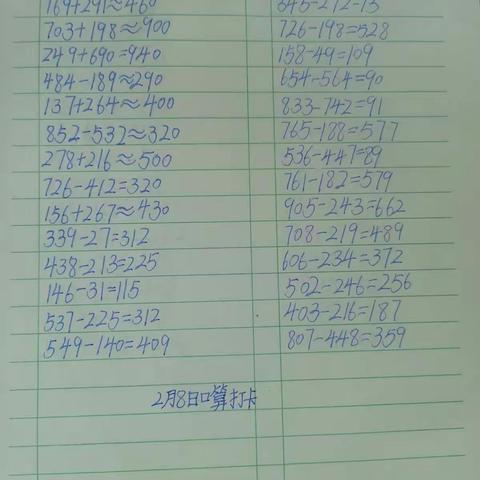 169+291≈460
703+198≈900
249+690=940
484-189≈290
137+264≈400
852-532≈320
278+216≈500
726-412=320
156+267≈430
339-27=312
438-213=225
146-31=115
537-225=312
549-140=409
726-198=528
158-49=109
654-564=90
833-742=91
765-188=577
536-447=89
761-182=579
905-243=662
708-219=489
606-234=372
502-246=256
403-216=187
807-448=359
2月8日口算打卡